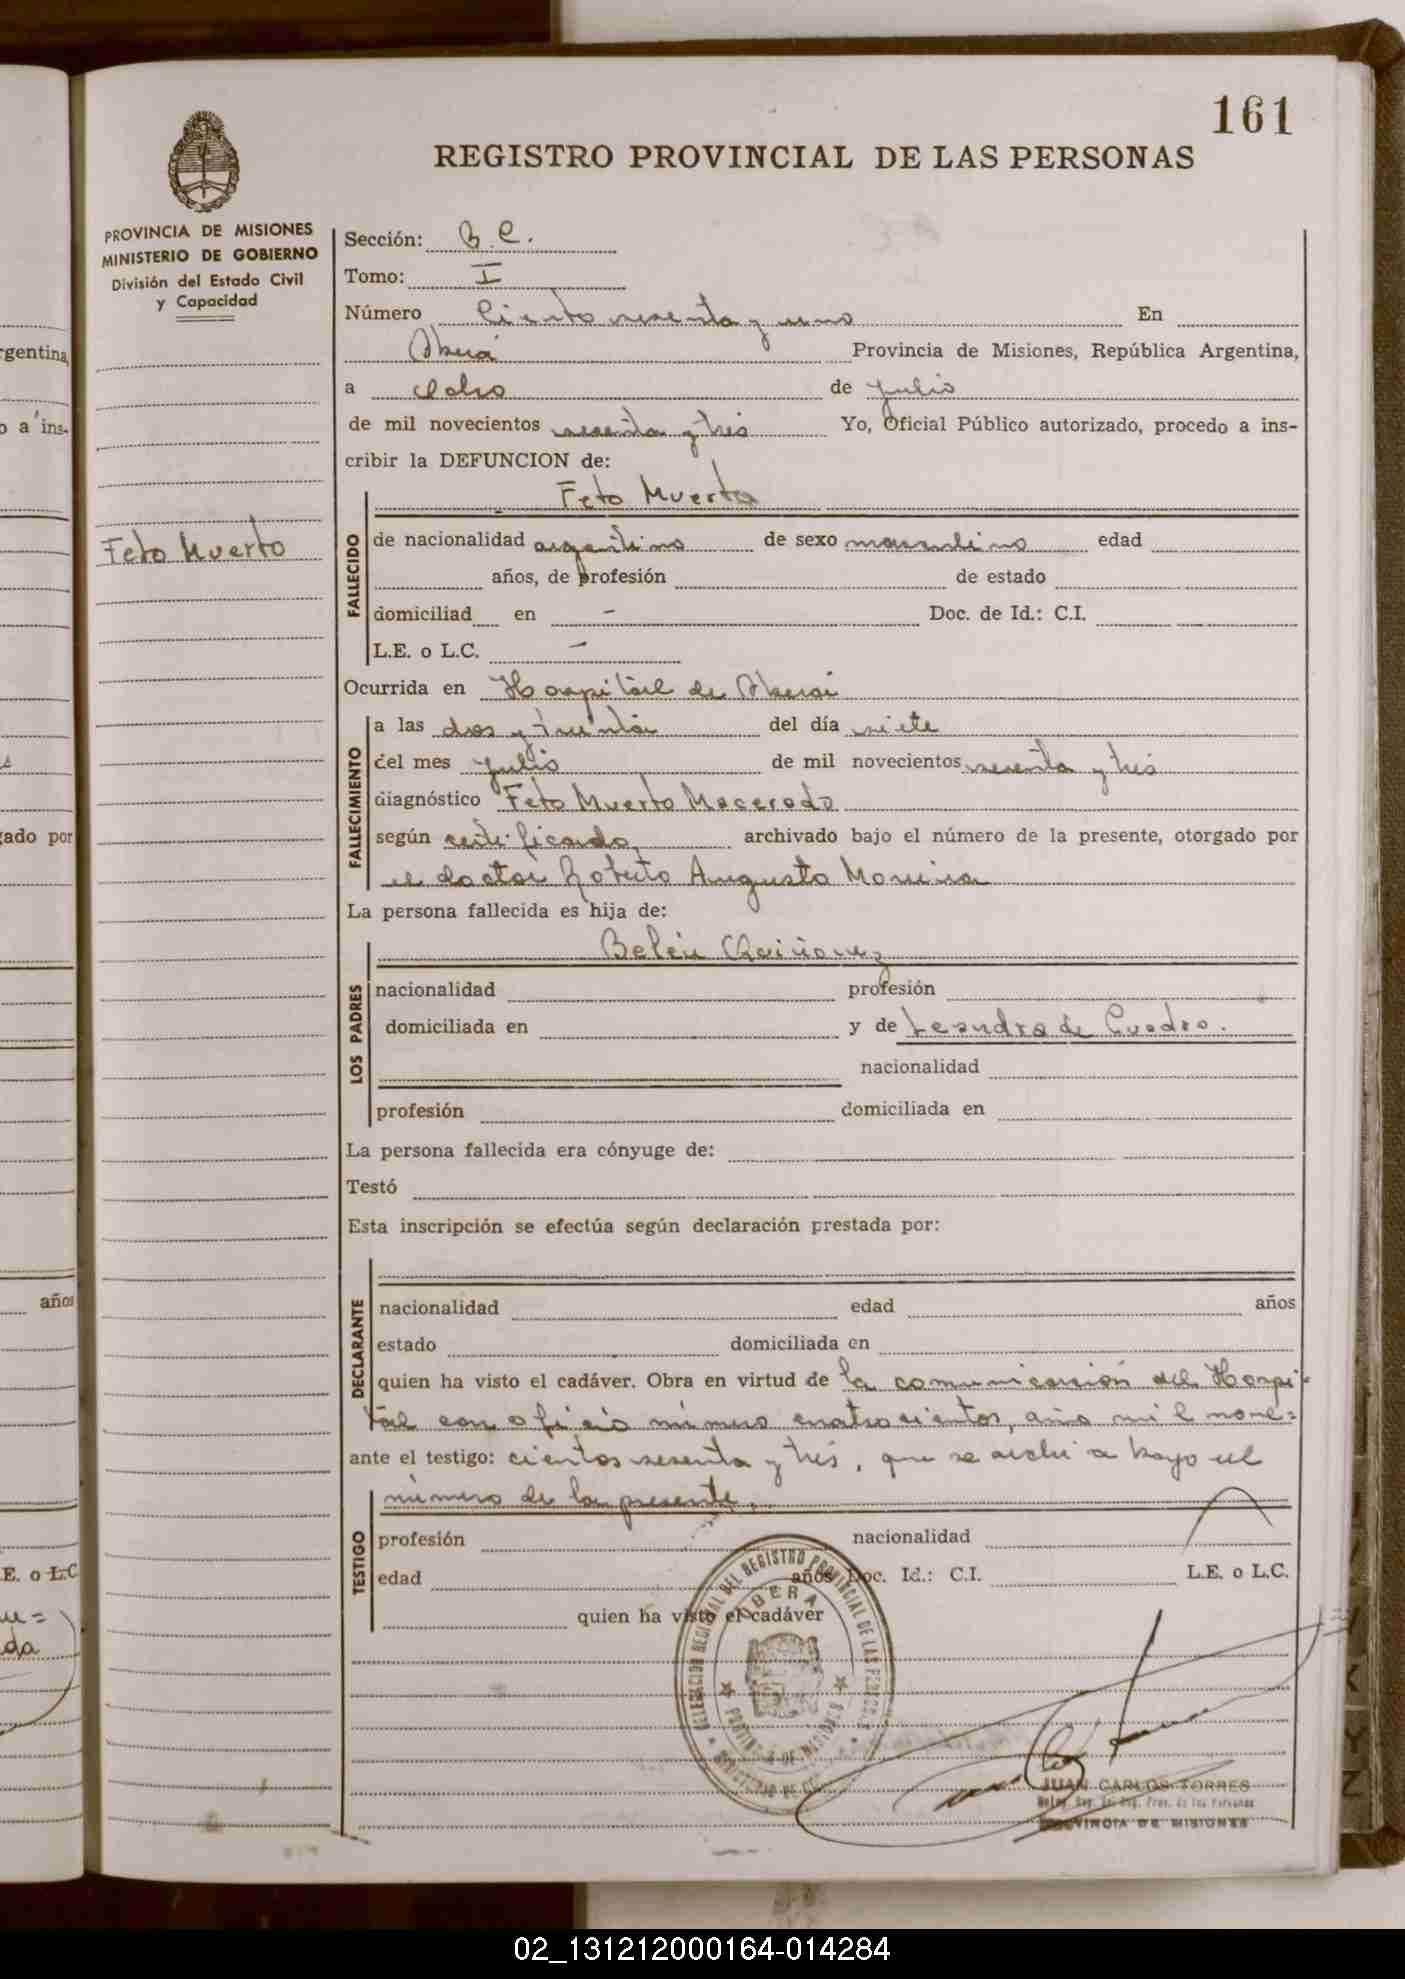 161
REGISTRO PROVINCIAL DE LAS PERSONAS
PROVINCIA DE MISIONES
MINISTERIO DE GOBIERNO
División del Estado Civil
y Capacidad
Feto Muerto
Sección: B.C.
Tomo: I
Número Ciento sesenta y uno En
Oberá Provincia de Misiones, República Argentina,
a Ocho de Julio
de mil novecientos sesenta y tres Yo, Oficial Público autorizado, procedo a ins-
cribir la DEFUNCION de:
Feto Muerto
FALLECIDO
de nacionalidad argentino de sexo masculino edad
años, de profesión de estado
domiciliad en - Doc. de Id.: C.I.
L.E. o L.C. -
Ocurrida en Hospital de Oberá
FALLECIMIENTO
a las dos y treinta del día siete
del mes Julio de mil novecientos sesenta y tres
diagnóstico Feto Muerto Macerado
según certificado archivado bajo el número de la presente, otorgado por
el doctor Roberto Augusto
La persona fallecida es hija de:
Belén
LOS PADRES
nacionalidad profesión
domiciliada en y de Leandro de Cuadro.
nacionalidad
profesión domiciliada en
La persona fallecida era cónyuge de:
Testó
Esta inscripción se efectúa según declaración prestada por:
DECLARANTE
nacionalidad edad años
estado domiciliada en
quien ha visto el cadáver. Obra en virtud de la comunicación del Hospi-
tal con oficio número cuatrocientos, año mil nove=
ante el testigo: cientos sesenta y tres, que se archiva bajo el
número de la presente.
TESTIGO
profesión nacionalidad
edad años Doc. Id.: C.I. L.E. o L.C.
quien ha visto el cadáver
DELEGACION REGIONAL DEL REGISTRO PROVINCIAL DE LAS PERSONAS
OBERA
PROVINCIA DE MISIONES
JUAN CARLOS TORRES
Deleg. Reg. del Reg. Prov. de las Personas
PROVINCIA DE MISIONES
rgentina,
o a ins-
gado por
años
E. o L.C.
da
K
Y
Z
02_131212000164-014284